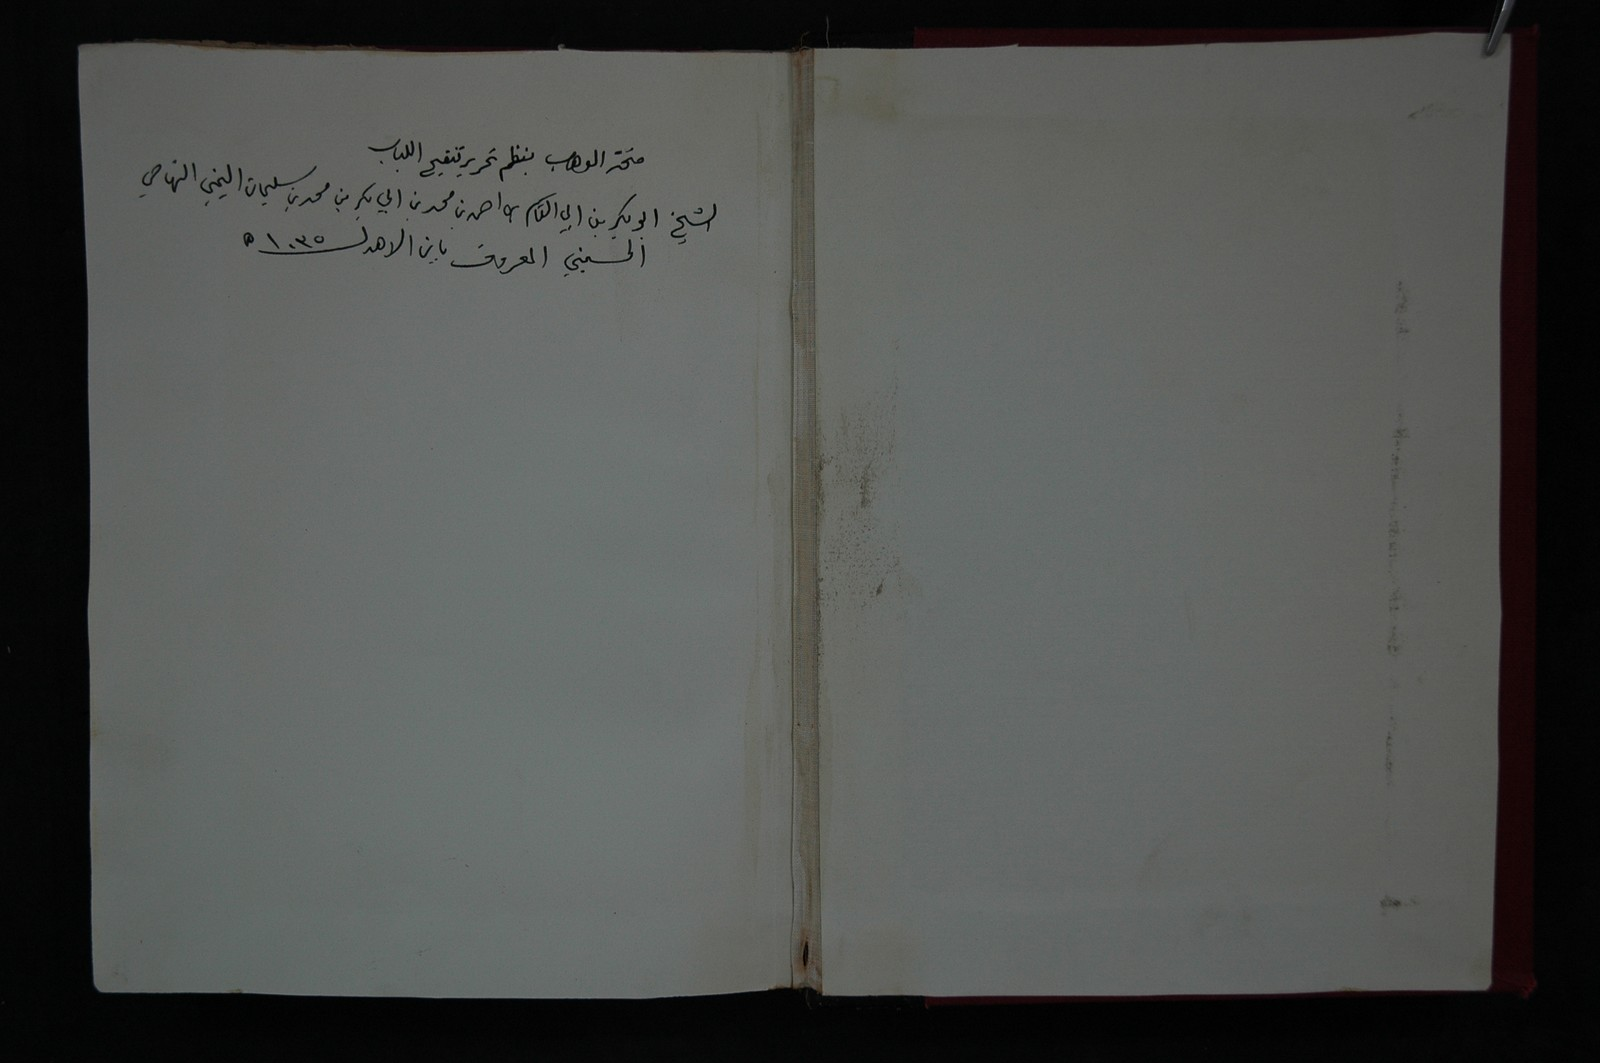 منحة الوهاب بنظم تحرير تنقيح اللباب
لشيخ ابو بكر بن ابي القاسم بن احمد بن محمد بن ابي بكر بن محمد بن سليمان اليمني التهامي
الحسيني المعروف بابن الاهدل ١٠٣٥ ه